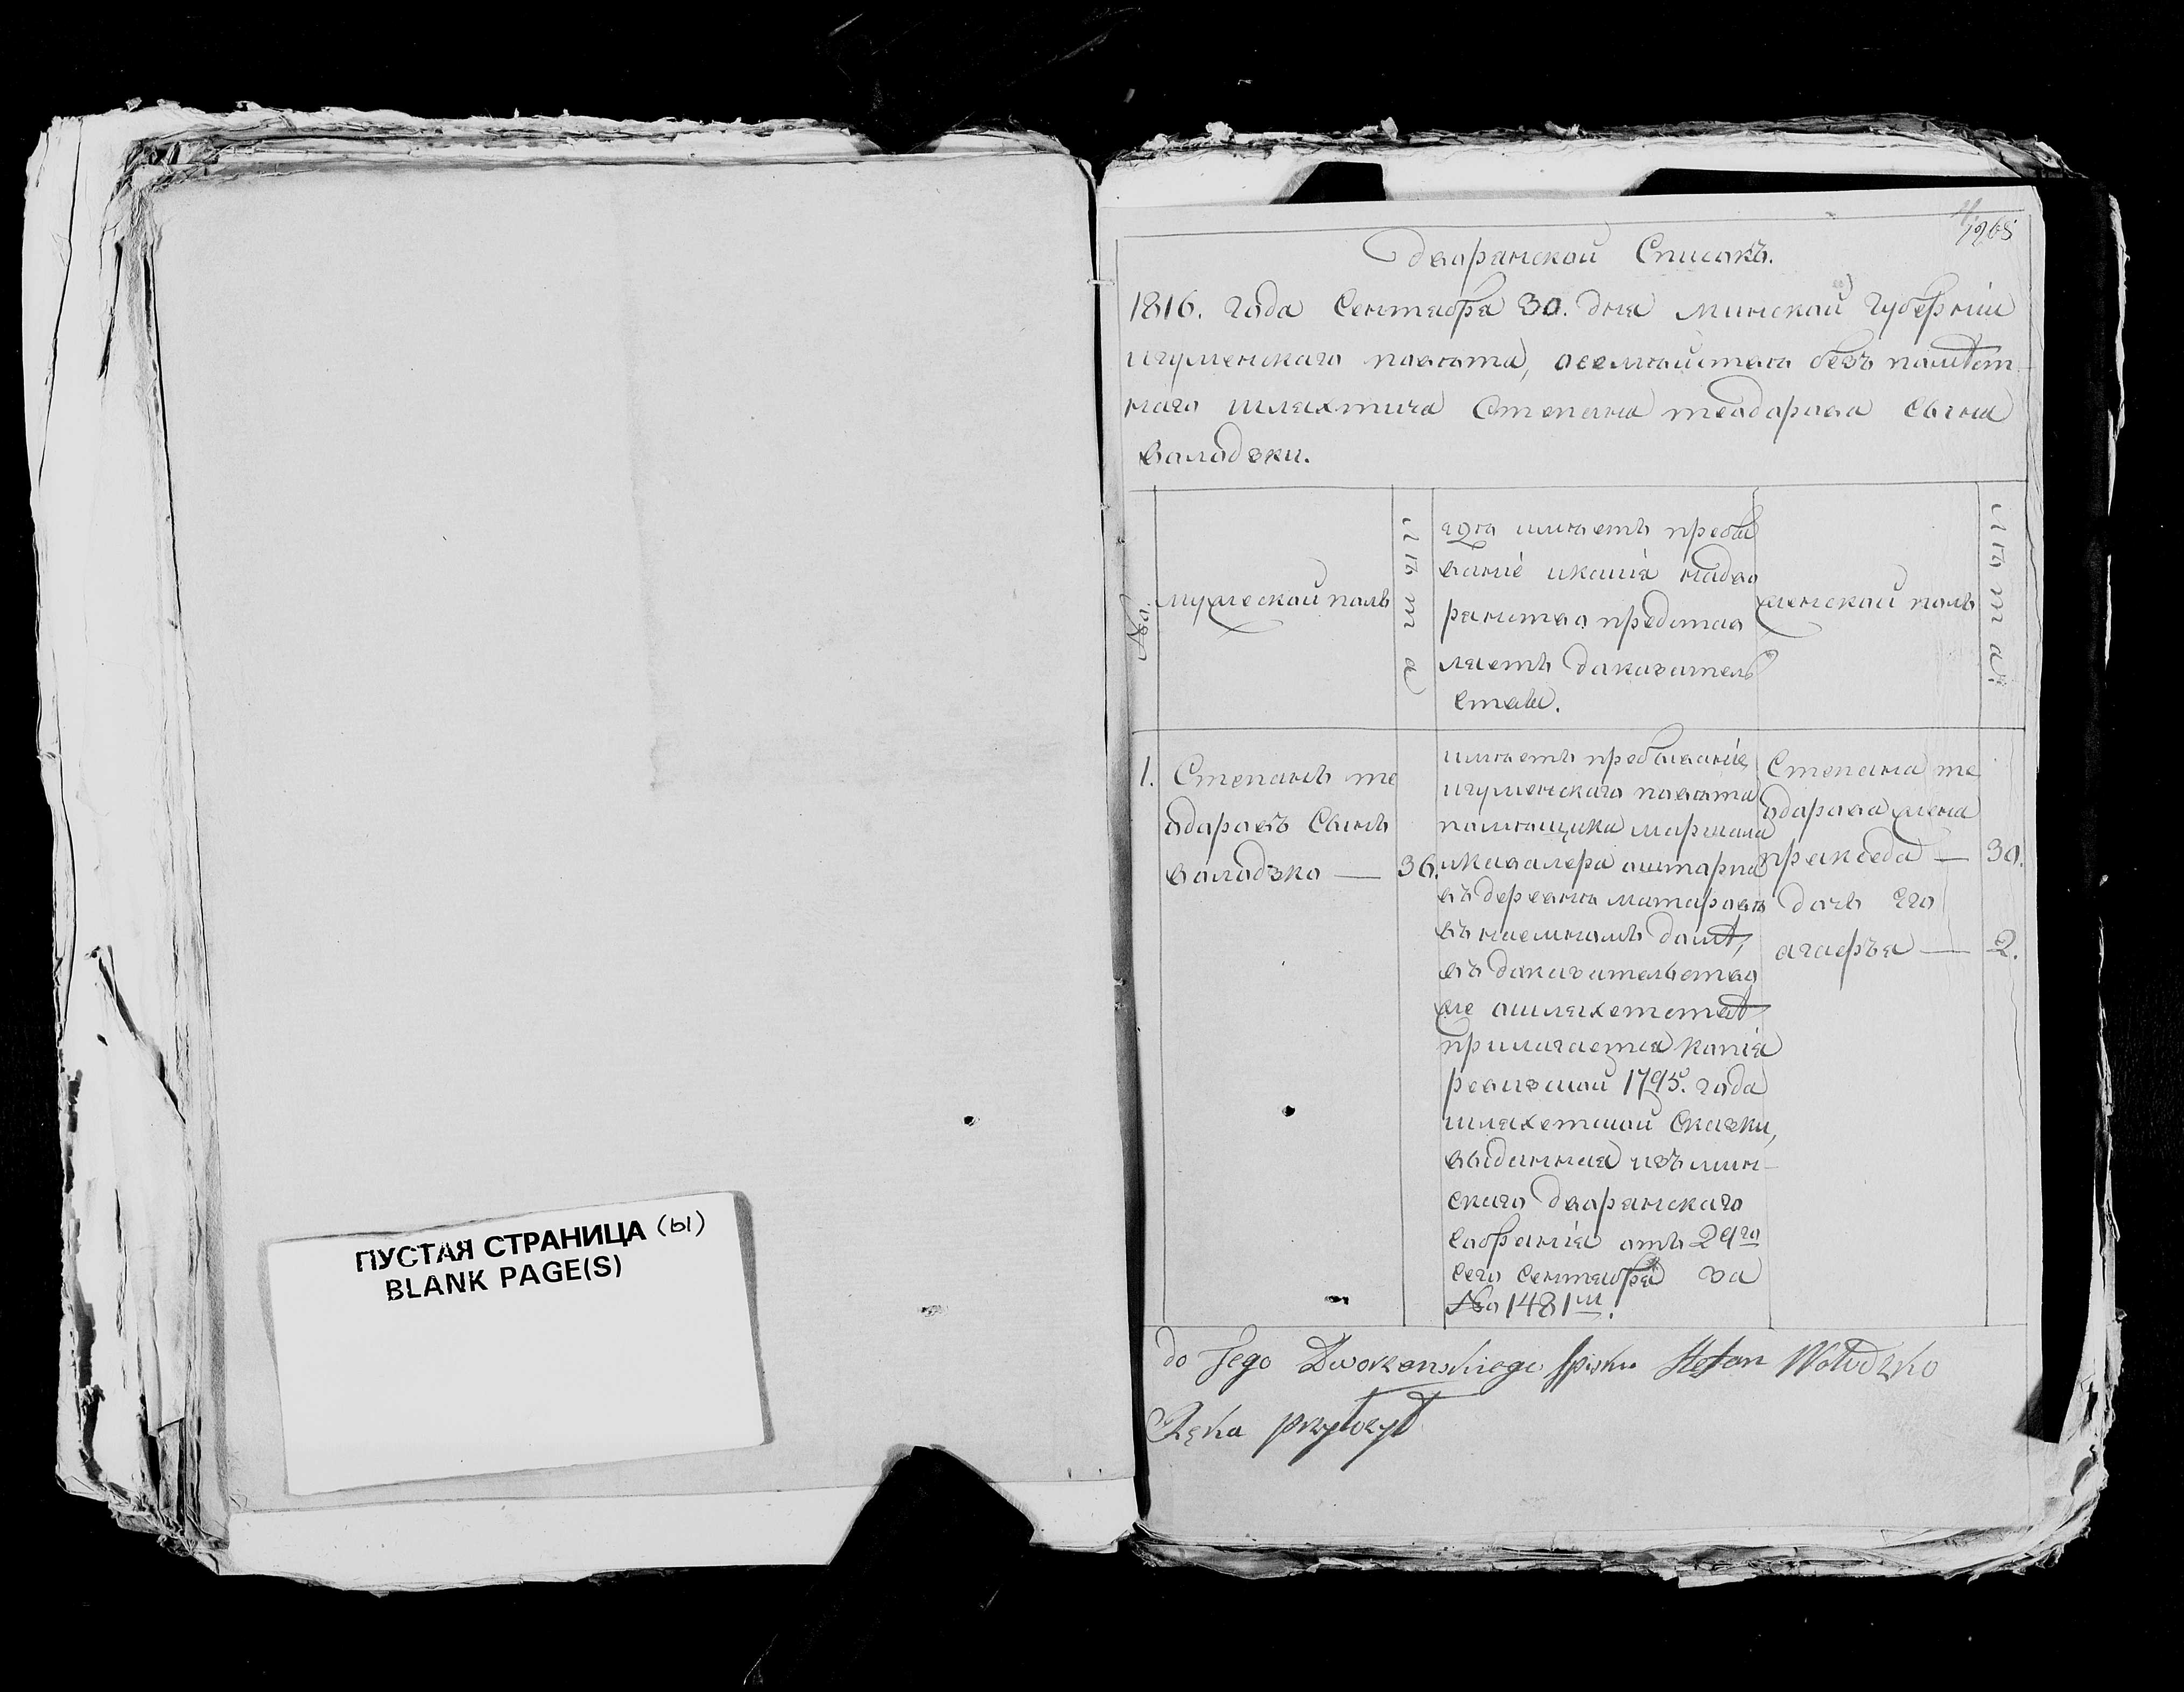 ПУСТАЯ СТРАНИЦА (ы)
BLANK PAGE(S)
Дворянской Списокъ.
1816. года Сентября 30. дня минской губерніи
игуменского повѣта, оселюйстого безъ помѣст
ного шляхтича Степана теодорова Сына
володзки.
No.
мужеской полъ
лѣта
где имѣетъ пребы
ваніе икакія надво
рянство представ
ляетъ доказатель
ствы.
женской полъ
лѣта.
1. Степанъ те
одоровъ Сынъ
володзко — 36.
имѣетъ пребываніе
игуменского повѣта
помѣщика маршала
икавалера оштарпа
въ деревнѣ маторовѣ
въ наемномъ домѣ,
въ доказательство
же ошляхетствѣ
прилогается копія
ревизской 1795. года
шляхетской Сказки,
выданная изъ мин-
ского дворянского
Собранія отъ 29го
Сего Сентября за
No 1481м.
Степана те
одорова жена
праксeда — 30.
дочь его
агафья — 2.
do Jego Dworzanskiego Spisku Stefan Wołodzko
Ręka przyłożył